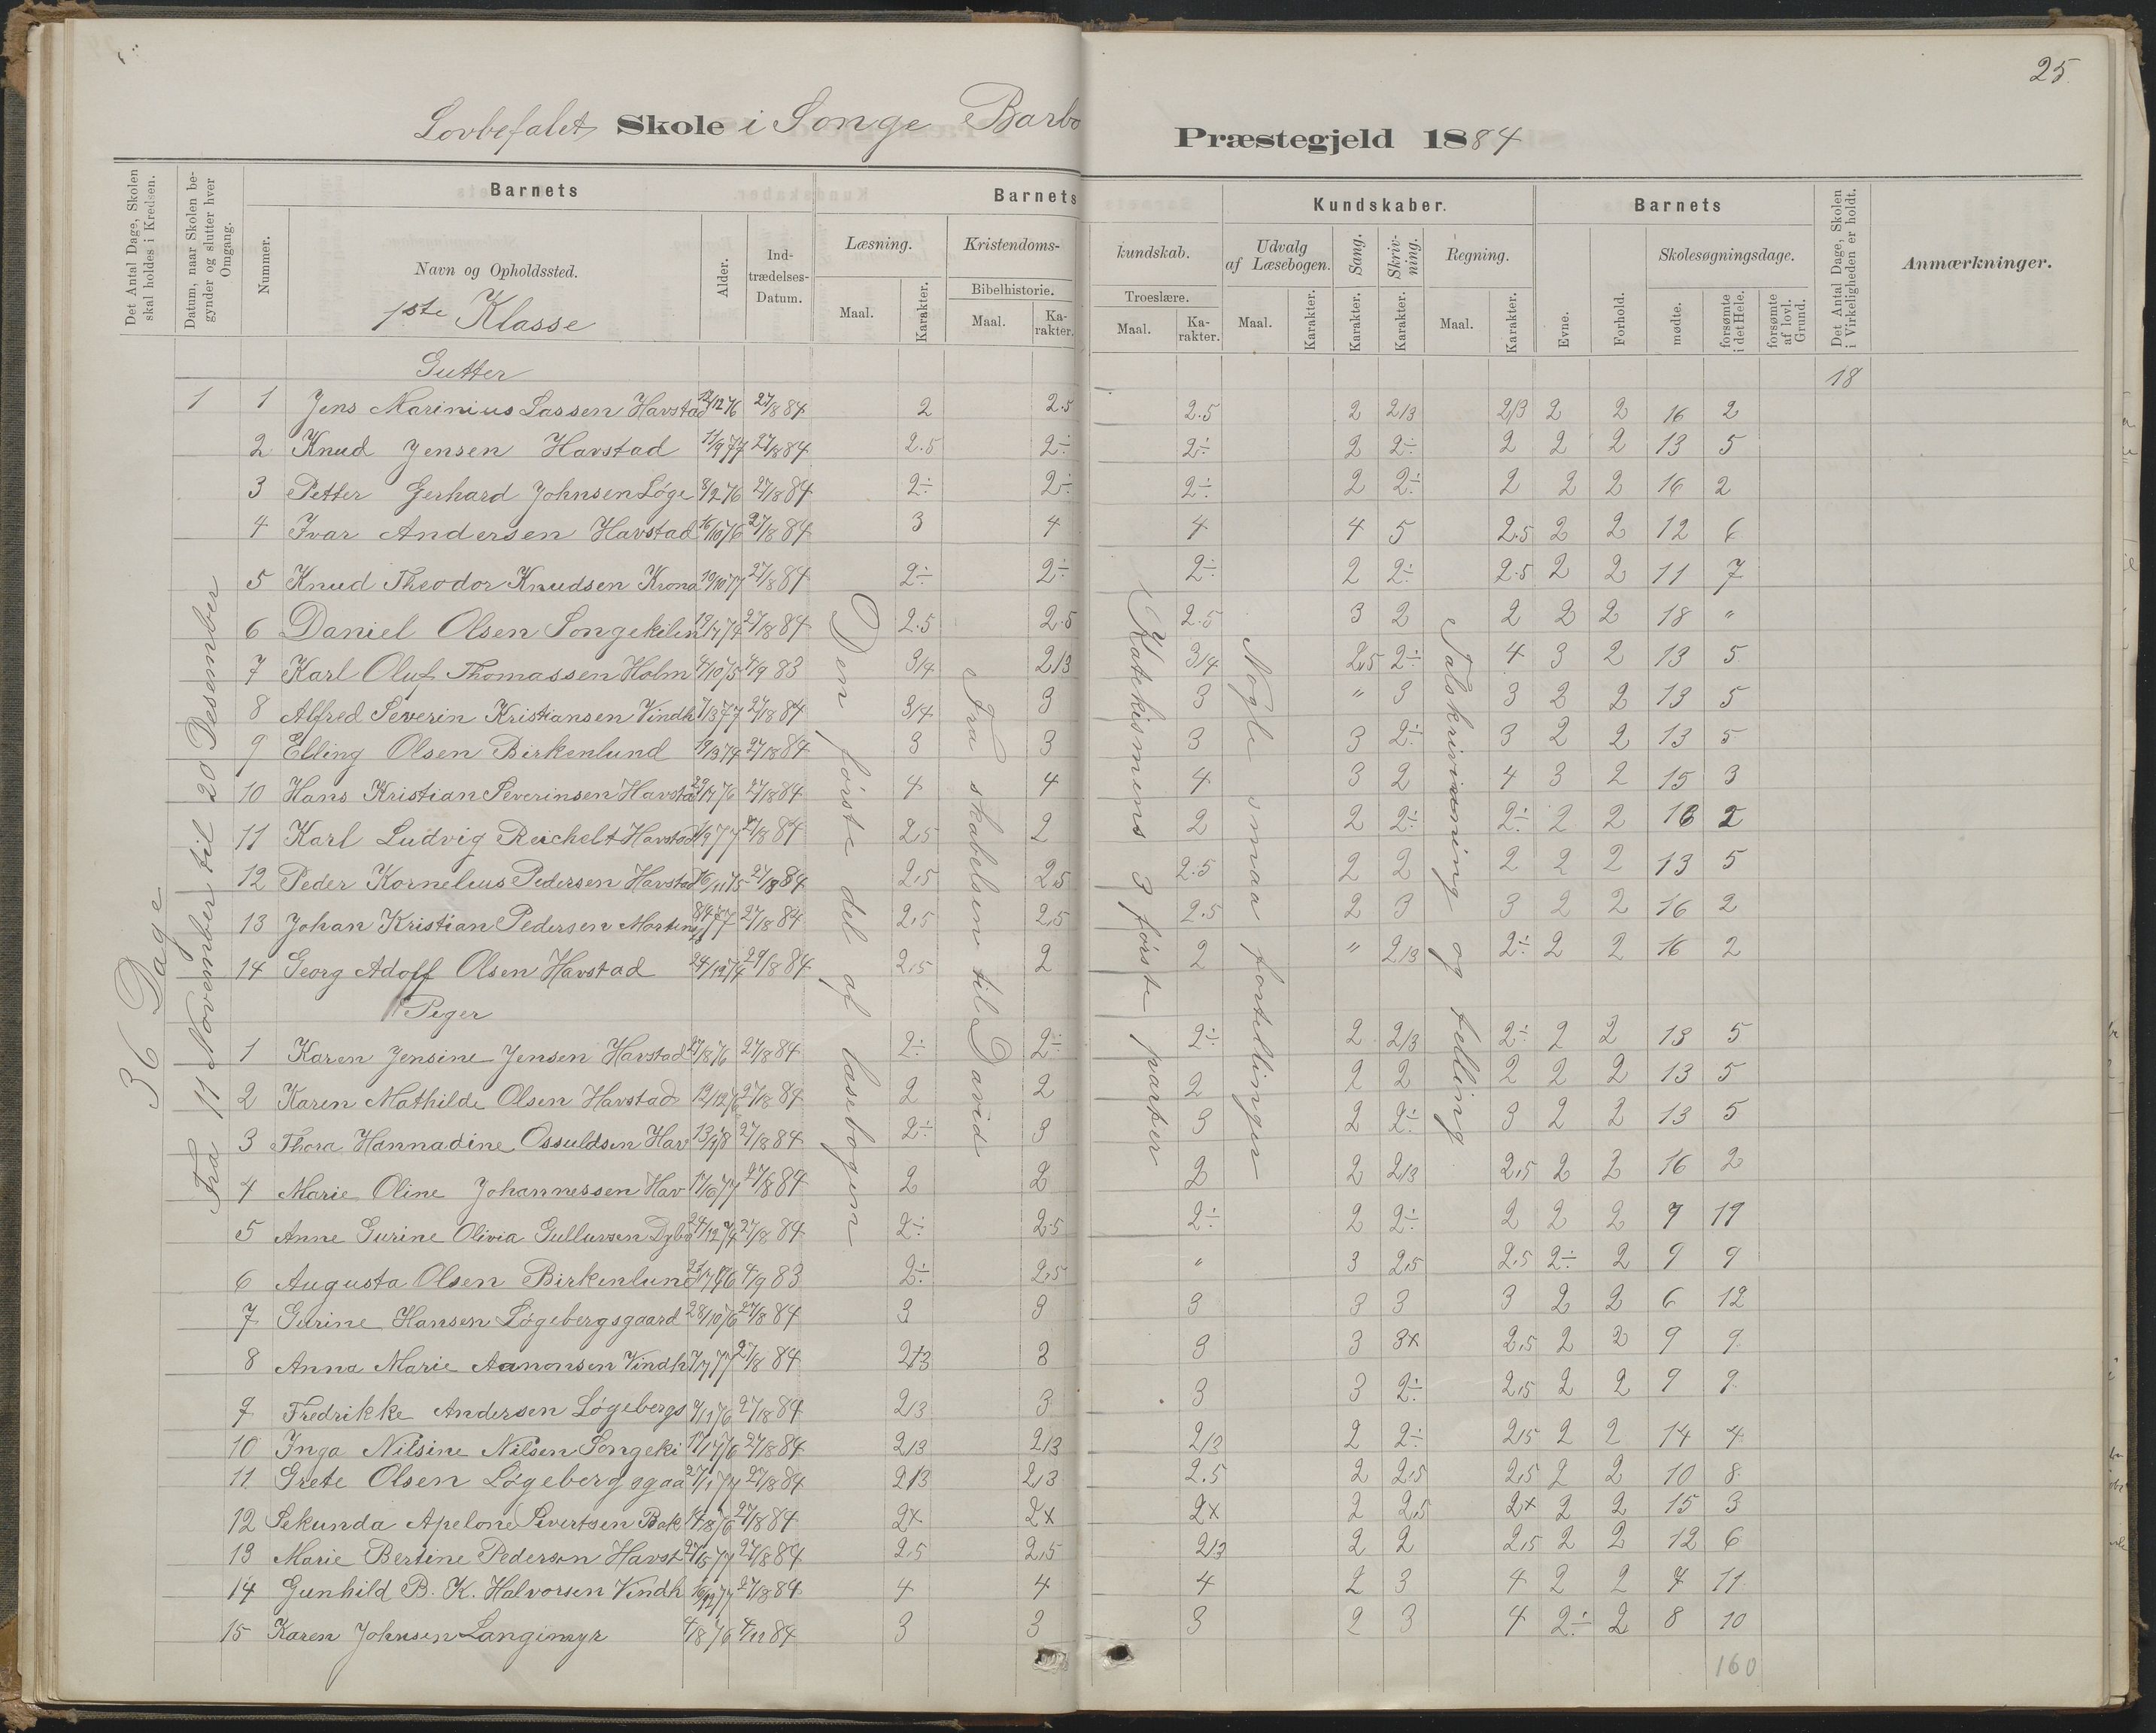 25.
Lovbefalet Skole i Songe Barbo Præstegjeld 1884
Det Antal Dage, Skolen skal holdes i Kredsen.
Datum, naar Skolen begynder og slutter hver Omgang.
Barnets
Nummer.
Navn og Opholdssted.
1ste Klasse
Alder.
Indtrædelses-Datum.
Barnets
Læsning.
Maal.
Karakter.
Kristendoms-
Bibelhistorie.
Maal.
Karakter.
kundskab.
Troeslære.
Maal.
Karakter.
Kundskaber.
Udvalg af Læsebogen.
Maal.
Karakter.
Sang.
Karakter.
Skrivning.
Karakter.
Regning.
Maal.
Karakter.
Barnets
Evne.
Forhold.
Skolesøgningsdage.
mødte.
forsømte i det Hele.
forsømte af lovl. Grund.
Det Antal Dage, Skolen i Virkeligheden er holdt.
Anmærkninger.
36 Dage
Fra 11 November til 20 Desember
Den første del af læsebogen
Fra skabelsen til David
Katekismens 3 første parter
Nogle smaa fortellinger
Talskrivning og telling
Gutter
18
1 1 Jens Marinius Lassen Havstad 12/12 76 27/8 84 2 2.5 2.5 2 2/3 2/3 2 2 16 2
2 Knud Jensen Havstad 11/9 77 27/8 84 2.5 2÷ 2÷ 2 2÷ 2 2 2 13 5
3 Petter Gerhard Johnsen Løge 8/2 76 27/8 84 2÷ 2÷ 2÷ 2 2÷ 2 2 2 16 2
4 Ivar Andersen Havstad 16/10 76 27/8 84 3 4 4 4 5 2.5 2 2 12 6
5 Knud Theodor Knudsen Krona 19/10 77 27/8 84 2÷ 2÷ 2÷ 2 2÷ 2.5 2 2 11 7
6 Daniel Olsen Songekilen 19/7 74 27/8 84 2.5 2.5 2.5 3 2 2 2 2 18 "
7 Karl Oluf Thomassen Holm 4/10 75 4/9 83 3/4 2/3 3/4 2,5 2÷ 4 3 2 13 5
8 Alfred Severin Kristiansen Vindh 7/3 77 27/8 84 3/4 3 3 " 3 3 2 2 13 5
9 Elling Olsen Birkenlund 19/3 74 27/8 84 3 3 3 3 2÷ 3 2 2 13 5
10 Hans Kristian Severinsen Havsta 29/7 76 27/8 84 4 4 4 3 2 4 3 2 15 3
11 Karl Ludvig Reichelt Havstad 1/9 77 27/8 84 2,5 2 2 2 2÷ 2÷ 2 2 16 2
12 Peder Kornelius Pedersen Havstad 16/11 75 27/8 84 2,5 2,5 2.5 2 2 2 2 2 13 5
13 Johan Kristian Pedersen 77 27/8 84 2,5 2,5 2.5 2 3 3 2 2 16 2
14 Georg Adolf Olsen Havstad 24/12 74 29/8 84 2,5 2 2 " 2/3 2÷ 2 2 16 2
Piger
1 Karen Jensine Jensen Havstad 27/8 76 27/8 84 2÷ 2÷ 2÷ 2 2/3 2÷ 2 2 13 5
2 Karen Mathilde Olsen Havstad 12/12 76 27/8 84 2 2 2 2 2 2 2 2 13 5
3 Thora Hannadine Ossuldsen Hav 27/8 84 2÷ 3 3 2 2÷ 3 2 2 13 5
4 Marie Oline Johannessen Hav 17/6 77 27/8 84 2 2 2 2 2/3 2,5 2 2 16 2
5 Anne Gurine Olivia Gullursen 24/12 74 27/8 84 2÷ 2.5 2÷ 2 2÷ 2 2 2 7 11
6 Augusta Olsen Birkenlund 76 4/9 83 2÷ 2,5 " 3 2,5 2,5 2÷ 2 9 9
7 Gurine Hansen Løgebergsgaard 28/10 76 27/8 84 3 3 3 3 3 3 2 2 6 12
8 Anna Marie Aanonsen Vindh 7/7 77 27/8 84 2/3 3 3 3 3x 2,5 2 2 9 9
9 Fredrikke Andersen Løgebergs 9/1 76 27/8 84 2/3 3 3 3 2÷ 2,5 2 2 9 9
10 Inga Nilsine Nilsen Songeki 17/7 76 27/8 84 2/3 2/3 2/3 2 2÷ 2,5 2 2 14 4
11 Grete Olsen Løgebergsgaa 27/1 77 27/8 84 2/3 2,3 2.5 2 2,5 2,5 2 2 10 8
12 Sekunda Apelone Sivertsen Bak 14/8 76 27/8 84 2x 2x 2x 2 2,5 2x 2 2 15 3
13 Marie Bertine Pedersen Havst 27/5 77 27/8 84 2.5 2,5 2/3 2 2 2,5 2 2 12 6
14 Gunhild B. K. Halvorsen Vindh 16/12 77 27/8 84 4 4 4 2 3 4 2 2 7 11
15 Karen Johnsen Langimyr 4/8 76 4/11 84 3 3 3 2 3 4 2÷ 2 8 10
160